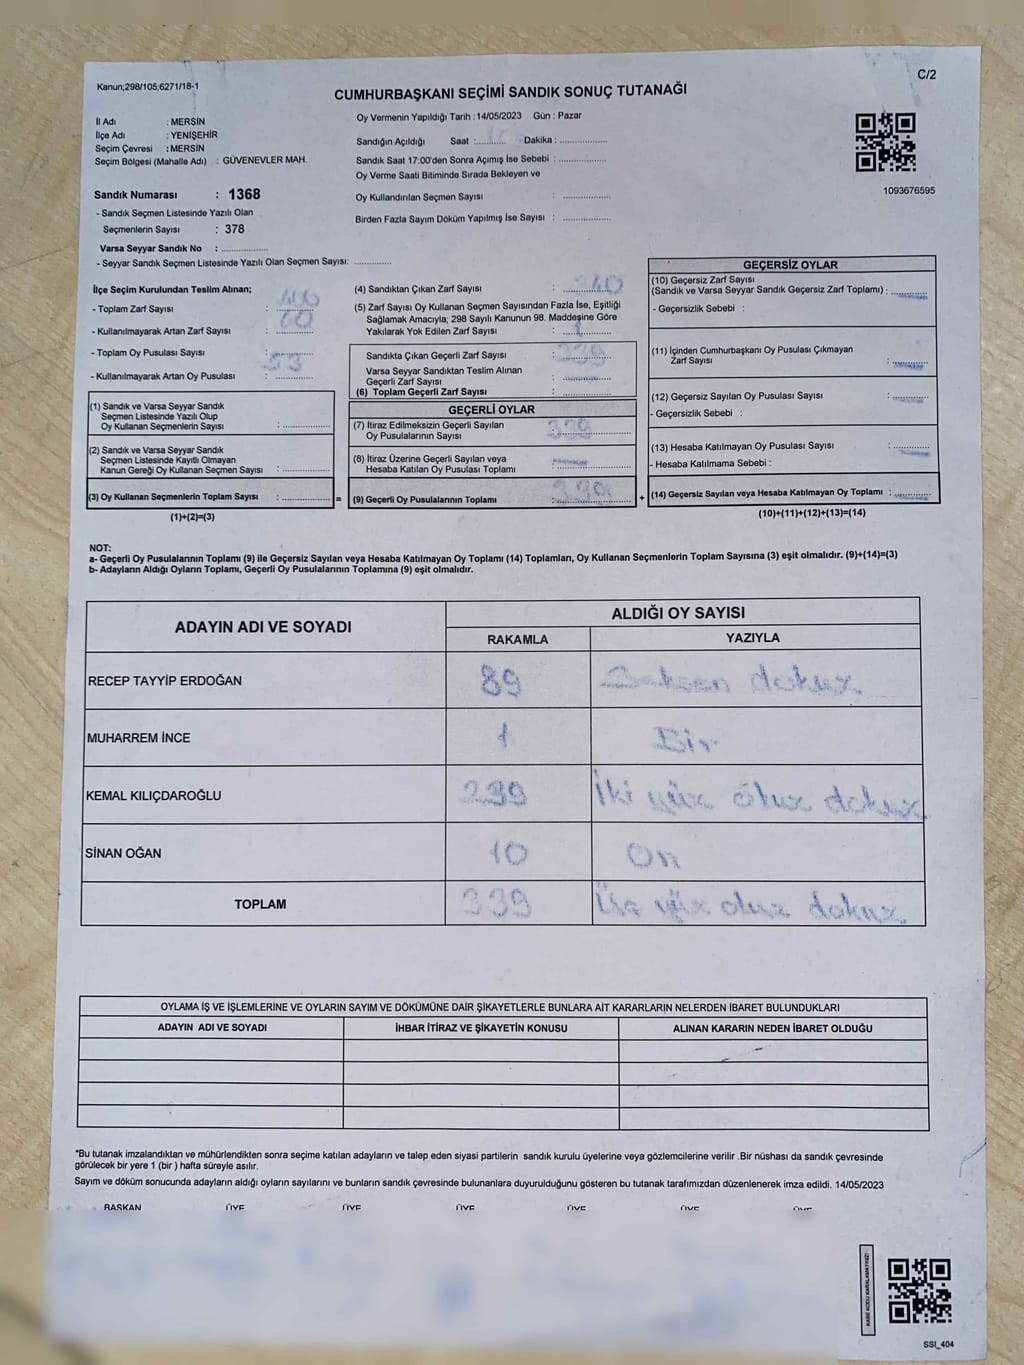 Kanun;298/105;6271/18-1
C/2
CUMHURBAŞKANI SEÇİMİ SANDIK SONUÇ TUTANAĞI
İl Adı : MERSİN
İlçe Adı : YENİŞEHİR
Seçim Çevresi : MERSİN
Seçim Bölgesi (Mahalle Adı) : GÜVENEVLER MAH.
Oy Vermenin Yapıldığı Tarih : 14/05/2023 Gün : Pazar
Sandığın Açıldığı Saat :.......... Dakika :..............
Sandık Saat 17:00'den Sonra Açımış İse Sebebi : ..............
Oy Verme Saati Bitiminde Sırada Bekleyen ve
Oy Kullandırılan Seçmen Sayısı : ..............
Birden Fazla Sayım Döküm Yapılmış İse Sayısı : ..............
1093676595
Sandık Numarası : 1368
- Sandık Seçmen Listesinde Yazılı Olan
Seçmenlerin Sayısı : 378
Varsa Seyyar Sandık No : ..............
- Seyyar Sandık Seçmen Listesinde Yazılı Olan Seçmen Sayısı: ............
İlçe Seçim Kurulundan Teslim Alınan;
- Toplam Zarf Sayısı :
- Kullanılmayarak Artan Zarf Sayısı : 60
- Toplam Oy Pusulası Sayısı :
- Kullanılmayarak Artan Oy Pusulası : 53
(1) Sandık ve Varsa Seyyar Sandık
Seçmen Listesinde Yazılı Olup
Oy Kullanan Seçmenlerin Sayısı : ..............
(2) Sandık ve Varsa Seyyar Sandık
Seçmen Listesinde Kayıtlı Olmayan
Kanun Gereği Oy Kullanan Seçmen Sayısı : ..............
(3) Oy Kullanan Seçmenlerin Toplam Sayısı : .............. =
(1)+(2)=(3)
(4) Sandıktan Çıkan Zarf Sayısı : 340
(5) Zarf Sayısı Oy Kullanan Seçmen Sayısından Fazla İse, Eşitliği
Sağlamak Amacıyla; 298 Sayılı Kanunun 98. Maddesine Göre
Yakılarak Yok Edilen Zarf Sayısı : 1
Sandıkta Çıkan Geçerli Zarf Sayısı : 339
Varsa Seyyar Sandıktan Teslim Alınan
Geçerli Zarf Sayısı :
(6) Toplam Geçerli Zarf Sayısı : ..............
GEÇERLİ OYLAR
(7) İtiraz Edilmeksizin Geçerli Sayılan
Oy Pusulalarının Sayısı : 339
(8) İtiraz Üzerine Geçerli Sayılan veya
Hesaba Katılan Oy Pusulası Toplamı :
(9) Geçerli Oy Pusulalarının Toplamı : 339 +
GEÇERSİZ OYLAR
(10) Geçersiz Zarf Sayısı
(Sandık ve Varsa Seyyar Sandık Geçersiz Zarf Toplamı) :
- Geçersizlik Sebebi :
(11) İçinden Cumhurbaşkanı Oy Pusulası Çıkmayan
Zarf Sayısı :
(12) Geçersiz Sayılan Oy Pusulası Sayısı :
- Geçersizlik Sebebi :
(13) Hesaba Katılmayan Oy Pusulası Sayısı :
- Hesaba Katılmama Sebebi :
(14) Geçersiz Sayılan veya Hesaba Katılmayan Oy Toplamı :
(10)+(11)+(12)+(13)=(14)
NOT:
a- Geçerli Oy Pusulalarının Toplamı (9) ile Geçersiz Sayılan veya Hesaba Katılmayan Oy Toplamı (14) Toplamları, Oy Kullanan Seçmenlerin Toplam Sayısına (3) eşit olmalıdır. (9)+(14)=(3)
b- Adayların Aldığı Oyların Toplamı, Geçerli Oy Pusulalarının Toplamına (9) eşit olmalıdır.
ADAYIN ADI VE SOYADI ALDIĞI OY SAYISI
RAKAMLA YAZIYLA
RECEP TAYYİP ERDOĞAN 89 Seksen dokuz
MUHARREM İNCE 1 Bir
KEMAL KILIÇDAROĞLU 239 İki yüz otuz dokuz
SİNAN OĞAN 10 On
TOPLAM 339 Üç yüz otuz dokuz
OYLAMA İŞ VE İŞLEMLERİNE VE OYLARIN SAYIM VE DÖKÜMÜNE DAİR ŞİKAYETLERLE BUNLARA AİT KARARLARIN NELERDEN İBARET BULUNDUKLARI
ADAYIN ADI VE SOYADI İHBAR İTİRAZ VE ŞİKAYETİN KONUSU ALINAN KARARIN NEDEN İBARET OLDUĞU
*Bu tutanak imzalandıktan ve mühürlendikten sonra seçime katılan adayların ve talep eden siyasi partilerin sandık kurulu üyelerine veya gözlemcilerine verilir .Bir nüshası da sandık çevresinde
görülecek bir yere 1 (bir ) hafta süreyle asılır.
Sayım ve döküm sonucunda adayların aldığı oyların sayılarını ve bunların sandık çevresinde bulunanlara duyurulduğunu gösteren bu tutanak tarafımızdan düzenlenerek imza edildi. 14/05/2023
BAŞKAN ÜYE ÜYE ÜYE ÜYE ÜYE ÜYE
KARE KODU KARALAMAYINIZ!
SSI_404